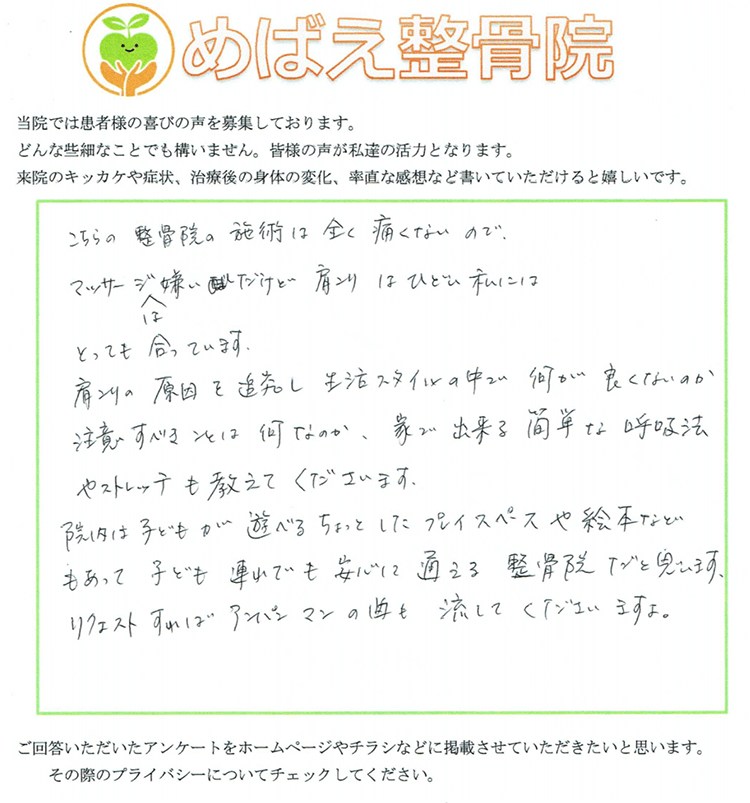 めばえ整骨院
当院では患者様の喜びの声を募集しております。
どんな些細なことでも構いません。皆様の声が私達の活力となります。
来院のキッカケや症状、治療後の身体の変化、率直な感想など書いていただけると嬉しいです。
こちらの 整骨院の 施術は 全く 痛くないので、
マッサージは嫌いだけど 肩こりはひどい 私には
とっても 合っています。
肩こりの 原因を 追究し 生活スタイルの中で 何が 良くないのか
注意すべきことは 何なのか、家で 出来る 簡単な 呼吸法
やストレッチも 教えて くださいます。
院内は子どもが 遊べる ちょっとした プレイスペースや 絵本など
もあって 子ども 連れでも 安心に 通える 整骨院だと思います。
リクエストすれば アンパンマンの曲も 流して くださいますよ。
ご回答いただいたアンケートをホームページやチラシなどに掲載させていただきたいと思います。
その際のプライバシーについてチェックしてください。